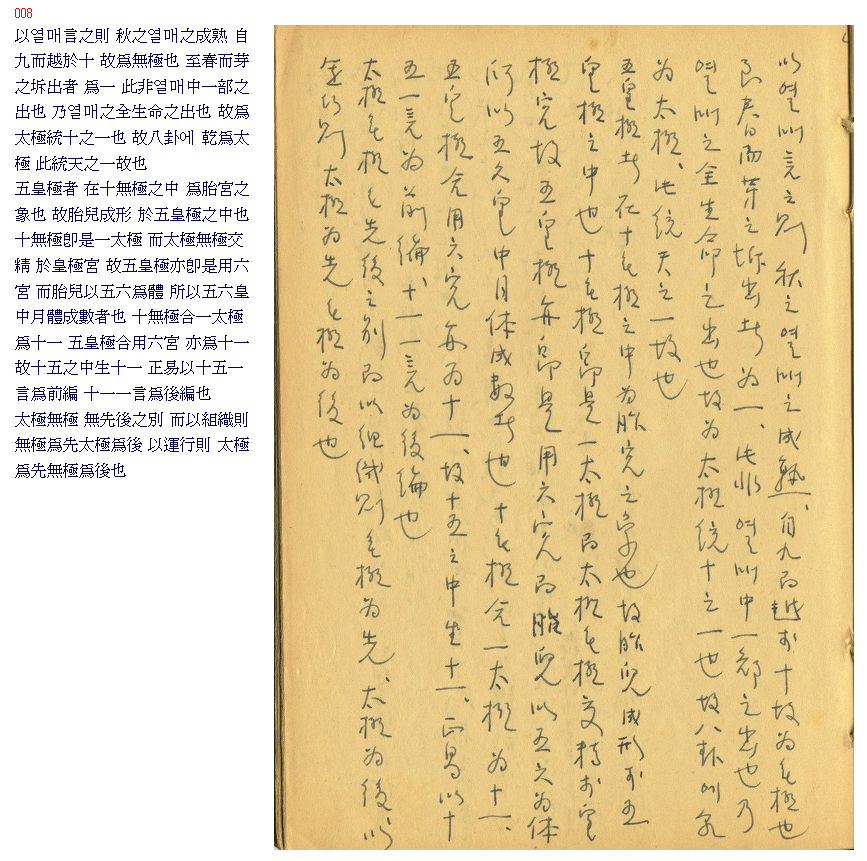 008
以열매言之則 秋之열매之成熟 自
九而越於十 故爲無極也 至春而芽
之坼出者 爲一 此非열매中一部之
出也 乃열매之全生命之出也 故爲
太極統十之一也 故八卦에 乾爲太
極 此統天之一故也
五皇極者 在十無極之中 爲胎宮之
象也 故胎兒成形 於五皇極之中也
十無極卽是一太極 而太極無極交
精 於皇極宮 故五皇極亦卽是用六
宮 而胎兒以五六爲體 所以五六皇
中月體成數者也 十無極合一太極
爲十一 五皇極合用六宮 亦爲十一
故十五之中生十一 正易以十五一
言爲前編 十一一言爲後編也
太極無極 無先後之別 而以組織則
無極爲先太極爲後 以運行則 太極
爲先無極爲後也
以열매言之則 秋之열매之成熟、自九而越於十 故为无極也
至春而芽之坼出者 为一、此非열매中一部之出也 乃
열매之全生命之出也 故为太極統十之一也 故八卦에 乾
为太極、此統天之一故也
五皇極者 在十无極之中 为胎宮之象也 故胎兒成形於五
皇極之中也 十无極卽是一太極 而太極无極交精於皇
極宮 故五皇極亦卽是用六宮 而胎兒以五六为体
所以五六皇中月体成數者也 十无極合一太極 为十一、
五皇極合用六宮 亦为十一、故十五之中生十一、正易以十
五一言为前編、十一一言为後編也
太極无極无先後之別 而以組織則 无極为先、太極为後、以
運行則 太極为先 无極为後也